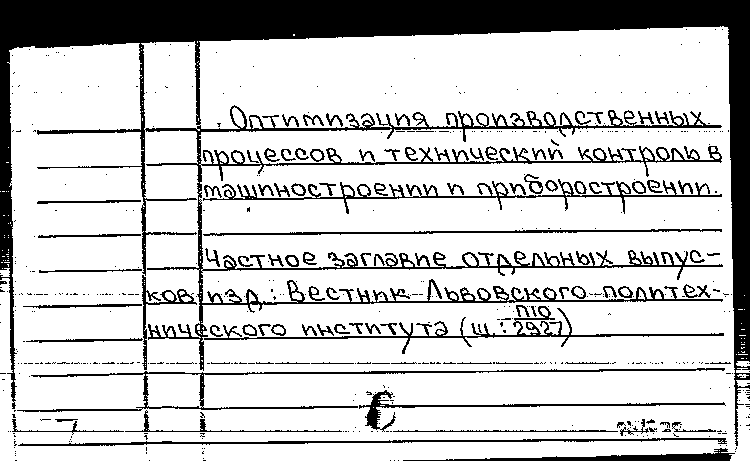 Оптимизация производственных
процессов и технический контроль в
машиностроении и приборостроении.
Частное заглавие отдельных выпус-
ков изд.: Вестник Львовского политех-
нического института (ш.: П10/2927)